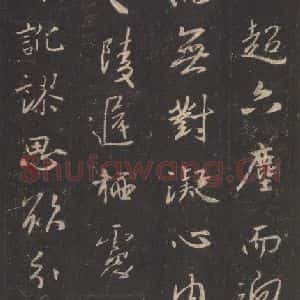 超六塵而迥
無對凝心內
陵遲栖慮
訛謬思欲分
Shufawang.cn